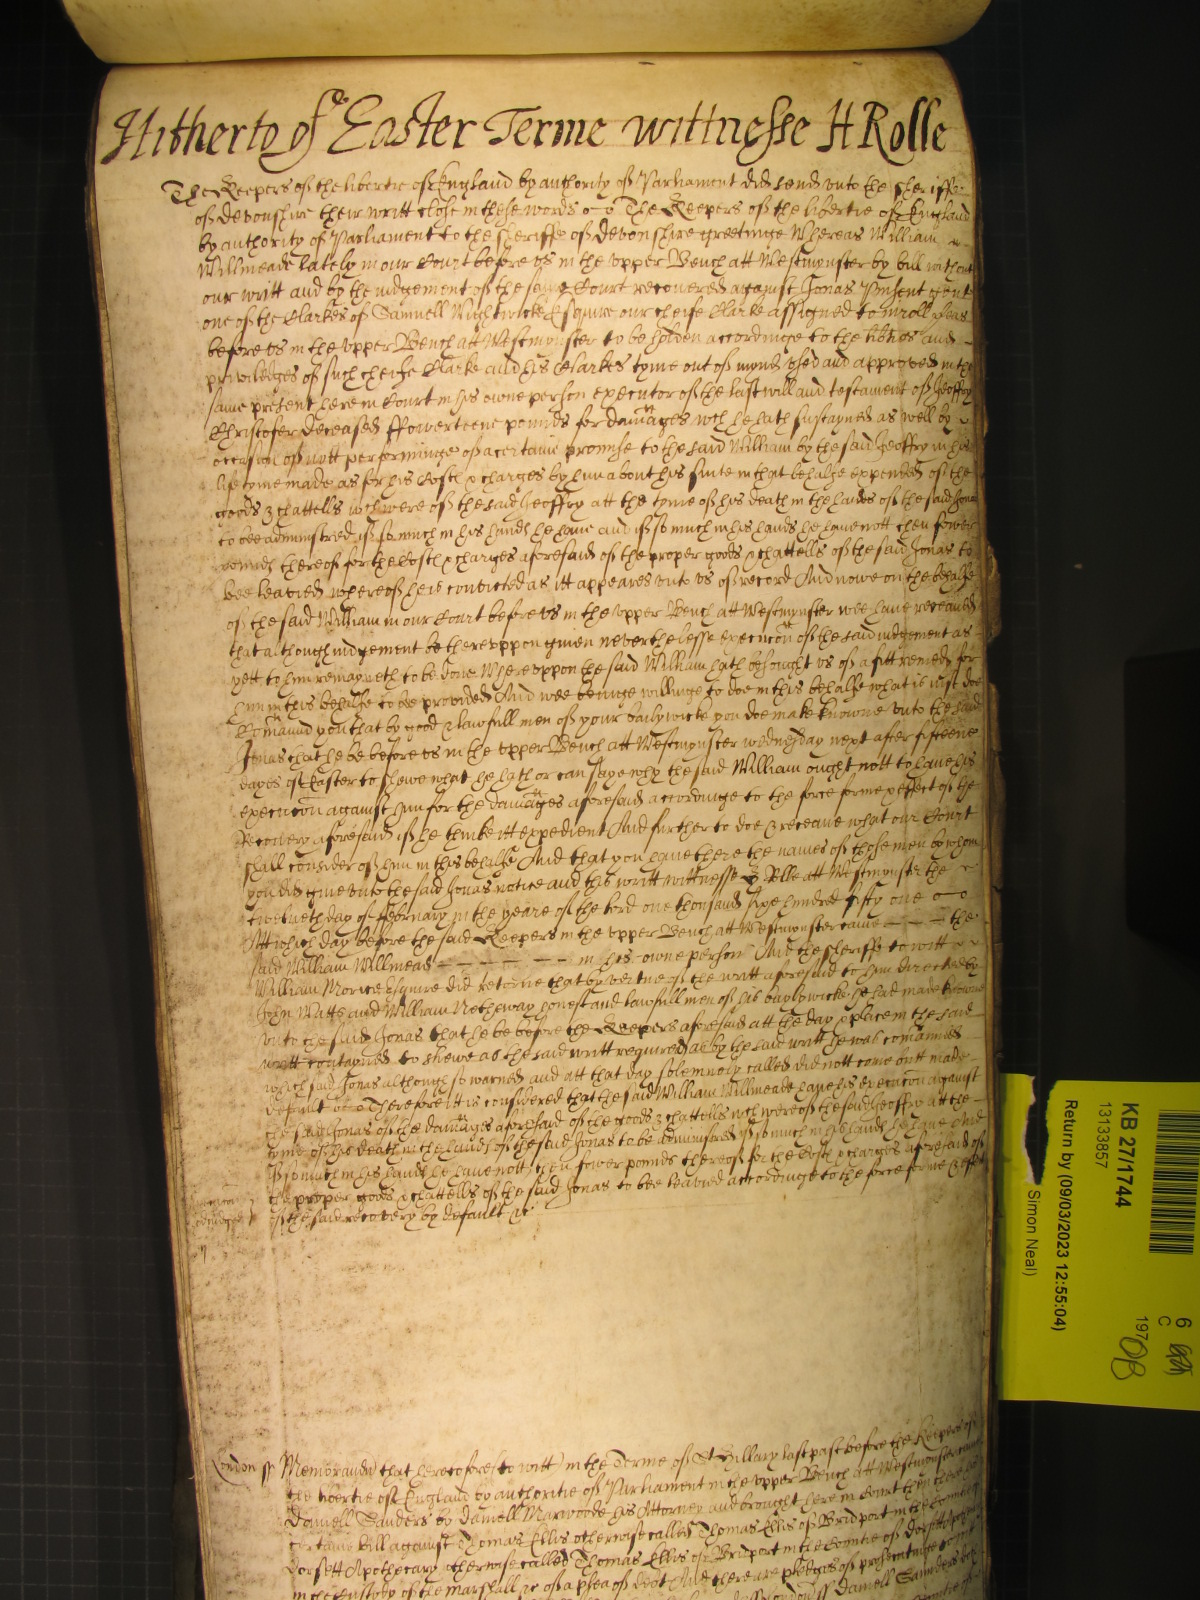 Hitherto of ye Easter Terme wittnesse H Rolle
The Keepers of the libertie of England by authority of Parliament did send unto the Sheriffe
of Devonshire their writt close in these words The Keepers of the libertie of England
by authority of Parliament to the sheriffe of Devonshire greetinge Whereas William
Willmeade lately in our Court before us in the upper Bench att Westmynster by bill without
our writt and by the iudgement of the same Court recovered against Jonas gent
one of the Clarkes of Samuell Wightwicke Esquire our cheife Clarke assigned to inroll pleas
before us in the upper Bench att Westmynster to be holden accordinge to the and
priviledges of such cheife Clarke and his Clarkes tyme out of mynde used and approved in the
same present here in Court in his owne person executor of the last will and testament of Jeoffry
Christofer deceased ffowerteene pounds for damages wch he hath sustayned as well by
occasion of nott performinge of a certaine promise to the said William by the said Jeoffry in his
life tyme made as for his Costs & charges by him about his suite in that behalfe expended of the
goods & chattells wch were of the said Jeoffry att the tyme of his death in the hands of the said Jonas
to bee administred if so much in his hands he have and if so much in his hands he have nott then fower
pounds thereof for the Costs & charges aforesaid of the proper goods & chattells of the said Jonas to
bee leavied whereof he is convicted as itt appeares unto us of record And nowe on the behalfe
of the said William in our Court before us in the upper Bench att Westmynster wee have receaved
that although iudgement be thereuppon given neverthelesse execucon of the said iudgement as
yett to him remayneth to be done Whereuppon the said William hath besought us of a fitt remedy for
him in this behalfe to be provided And wee beinge willinge to doe in this behalfe what is iust doe
Comaund you that by good & lawfull men of your bailywicke you doe make knowne unto the said
Jonas that he be before us in the upper Bench att Westmynster wednesday next after fifteene
dayes of Easter to shewe what he hath or can saye why the said William ought nott to have his
execucon against him for the damages aforesaid accordinge to the force forme & effect of the
Recovery aforesaid if he thinke itt expedient And further to doe & receave what our Court
shall consider of him in this behalfe And that you have there the names of those men by whom
you did give unto the said Jonas notice and this writt wittnesse H Rolle att Westmynster the
twelueth day of February in the yeare of the lord one thousand sixe hundred fifty one
Att which day before the said Keepers in the upper Bench att Westmynster came the
said William Willmead in his owne person And the sheriffe to witt
William Morice Esquire did retorne that by vertue of the writt aforesaid to him directed by
John Watts and William Netheway honest and lawfull men of his baylywicke he had made knowne
unto the said Jonas that he be before the Keepers aforesaid att the day & place in the said
writt contayned to shewe as the said writt required as by the said writt he was comanded
which said Jonas although so warned and att that day solemnely called did nott come butt made
default Therefore itt is considered that the said William Willmeade have his execucon against
the said Jonas of the damages aforesaid of the goods & chattells wch were of the said Jeoffry att the
tyme of his death in the hands of the said Jonas to be administred if so much in his hands he have And
if so much in his hands he have nott then fower pounds thereof for the Costs & charges aforesaid of
the proper goods & chattells of the said Jonas to bee leavied accordinge to the force forme & effect
of the said recovery by default &c
London ss Memorandu that heretofore to witt in the Terme of St Hillary last past before the Keepers of
the libertie of England by authoritie of Parliament in the upper Bench att Westmynster came
Daniell Sanders by Daniell Marwoode his Attorney and brought here in Court then there his
certaine bill against Thomas Ellis otherwise called Thomas Ellis of Bridport in the Countie
Dorsett Apothecary otherwise called Thomas Ellis of Bridport in the Countie of Dorsett
in the Custody of the marshall &c of a plea of debt And there are pledges of prosecutinge to witt
London ss Daniell Saunders
KB 27/1744
13133857
Return by (09/03/2023 12:55:04)
Simon Neal)
6
C
197